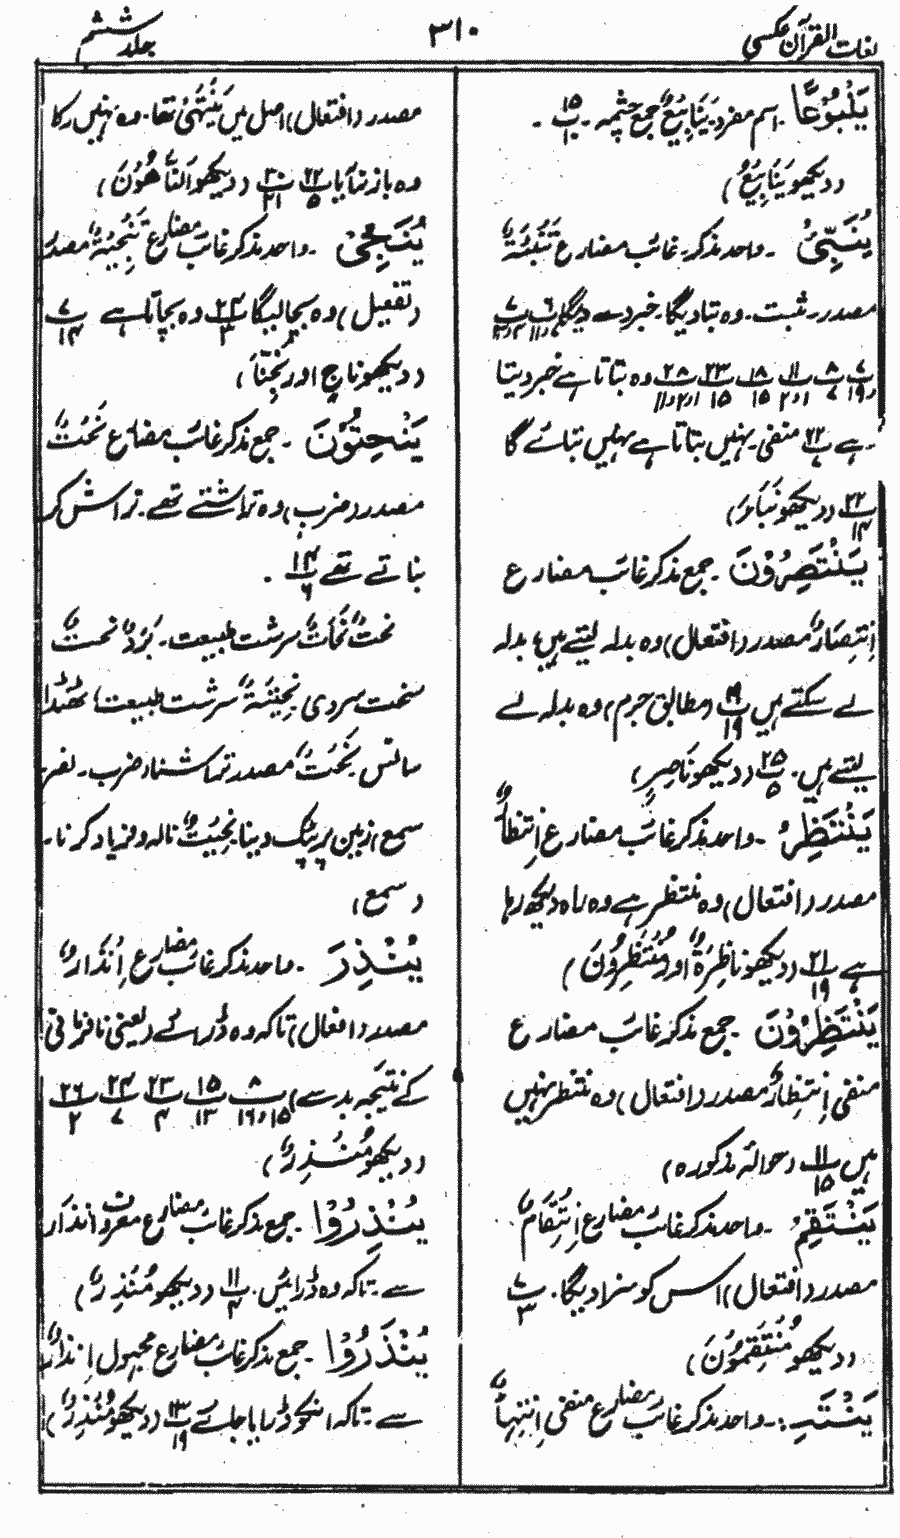 لغات القرآن عکسی
۳۱۰
جلد ششم
یَنْبُوْعًا ۔ اسم مفرد، یَنَابِیْعُ جمع چشمہ ۔ پ ۱۵/۱۰ ۔
(دیکھو یَنَابِیْعَ)
یُنَبِّئُ ۔ واحد مذکر غائب مضارع تَنْبِئَۃٌ
مصدر ۔ مثبت ۔ وہ بتا دیگا ۔ خبر دے دیگا
وہ بتاتا ہے خبر دیتا
ہے پ ۲۲/۷ منفی ۔ نہیں بتاتا ہے نہیں بتائے گا
پ ۲۲/۱۴ (دیکھو نَبَأَ)
یَنْتَصِرُوْنَ ۔ جمع مذکر غائب مضارع
اِنْتِصَارٌ مصدر (افتعال) وہ بدلہ لیتے ہیں، بدلہ
لے سکتے ہیں پ ۱۹/۱۹ (مطابق جرم) وہ بدلہ لے
لیتے ہیں ۔ پ ۲۵/۵ (دیکھو نَاصِرٍ)
یَنْتَظِرُ ۔ واحد مذکر غائب مضارع اِنْتِظَارٌ
مصدر (افتعال) وہ منتظر ہے وہ راہ دیکھ رہا
ہے پ ۲۱/۱۹ (دیکھو نَاظِرَۃٌ اور مُنْتَظِرُوْنَ)
یَنْتَظِرُوْنَ ۔ جمع مذکر غائب مضارع
منفی اِنْتِظَارٌ مصدر (افتعال) وہ منتظر نہیں
ہیں پ ۱۱/۱۵ (حوالہ مذکورہ)
یَنْتَقِمُ ۔ واحد مذکر غائب مضارع اِنْتِقَامٌ
مصدر (افتعال) اس کو سزا دیگا ۔ پ ۷/۳
(دیکھو مُنْتَقِمُوْنَ)
یَنْتَہِ : ۔ واحد مذکر غائب مضارع منفی اِنْتِہَاءٌ
مصدر (افتعال) اصل میں یَنْتَہِیْ تھا ۔ وہ نہیں رکا
وہ باز نہ آیا پ ۲۲/۵ پ ۳۰/۲۱ (دیکھو النَّاھُوْنَ)
یُنَجِّیْ ۔ واحد مذکر غائب مضارع تَنْجِیَۃٌ مصدر
(تفعیل) وہ بچا لیگا پ ۲۴/۳ وہ بچاتا ہے پ ۷/۱۴
(دیکھو نَاجٍ اور نَجّٰنَا)
یَنْحِتُوْنَ ۔ جمع مذکر غائب مضارع نَحْتٌ
مصدر (ضرب) وہ تراشتے تھے ۔ تراش کر
بناتے تھے پ ۱۴/۶ ۔
نَحْتٌ نَحَاتٌ سرشت طبیعت ۔ بَرْدٌ نَحْتٌ
سخت سردی نَحِیْتَۃٌ سرشت طبیعت، ٹھنڈا
سانس نَحْتٌ مصدر تراشنا، ضرب ۔ نصر
سمع، زمین پر پٹک دینا نَحِیْتٌ نالہ و فریاد کرنا ۔
(سمع)
یُنْذِرَ ۔ واحد مذکر غائب مضارع اِنْذَارٌ
مصدر (افعال) تاکہ وہ ڈرائے (یعنی نافرمانی
کے نتیجہ بد سے) پ ۸/۱۵، ۱۶ پ ۱۵/۱۳ پ ۲۳/۴ پ ۲۴/۷ پ ۲۶/۲
(دیکھو مُنْذِرٌ)
یُنْذِرُوْا ۔ جمع مذکر غائب مضارع معروف انذار
سے ۔ تاکہ وہ ڈرائیں ۔ پ ۱۱/۴ (دیکھو مُنْذِرٌ)
یُنْذَرُوْا ۔ جمع مذکر غائب مضارع مجہول اِنْذَارٌ
سے ۔ تاکہ انکو ڈرایا جائے پ ۱۳/۱۹ (دیکھو مُنْذِرٌ)